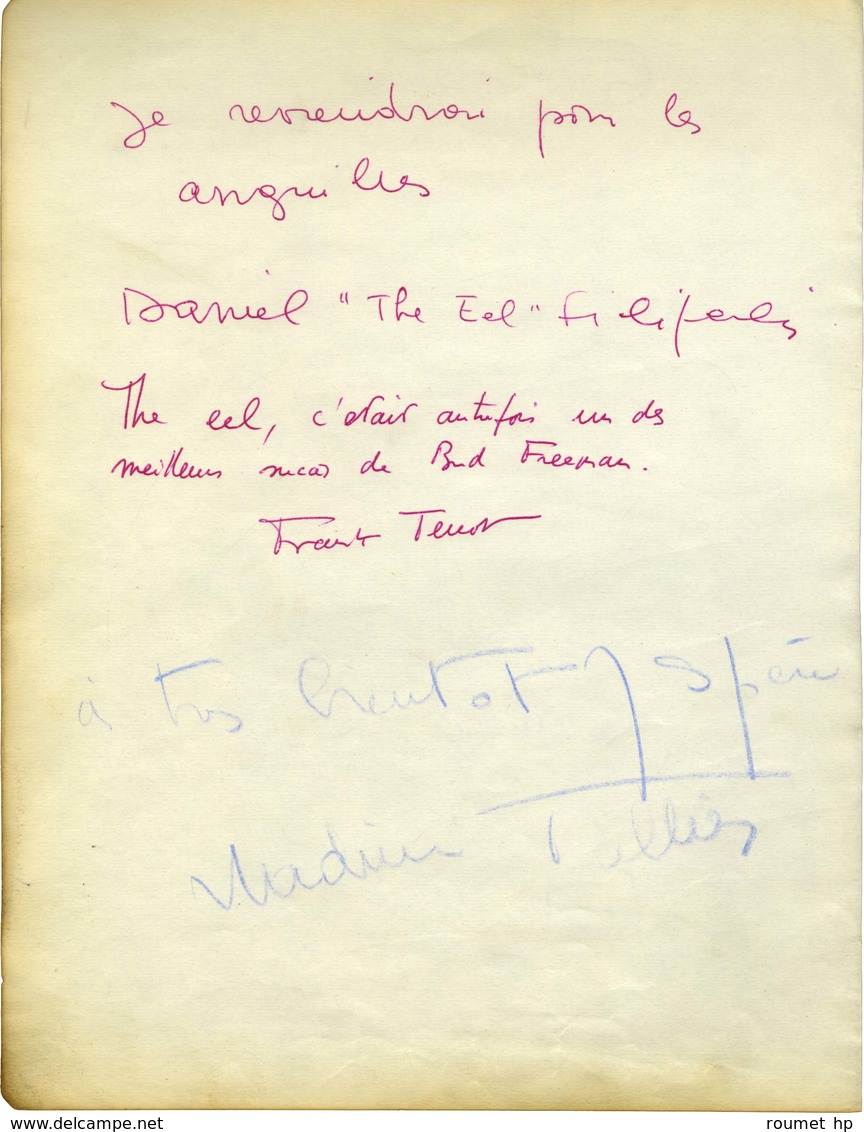 Je reviendrai pour les
anguilles
Daniel "The Eel" Filipacchi
The eel, c'était autrefois un des
meilleurs succès de Bud Freeman.
Frank Tenot
à tres bientot J Spère
Tellier
www.delcampe.net
roumet hp